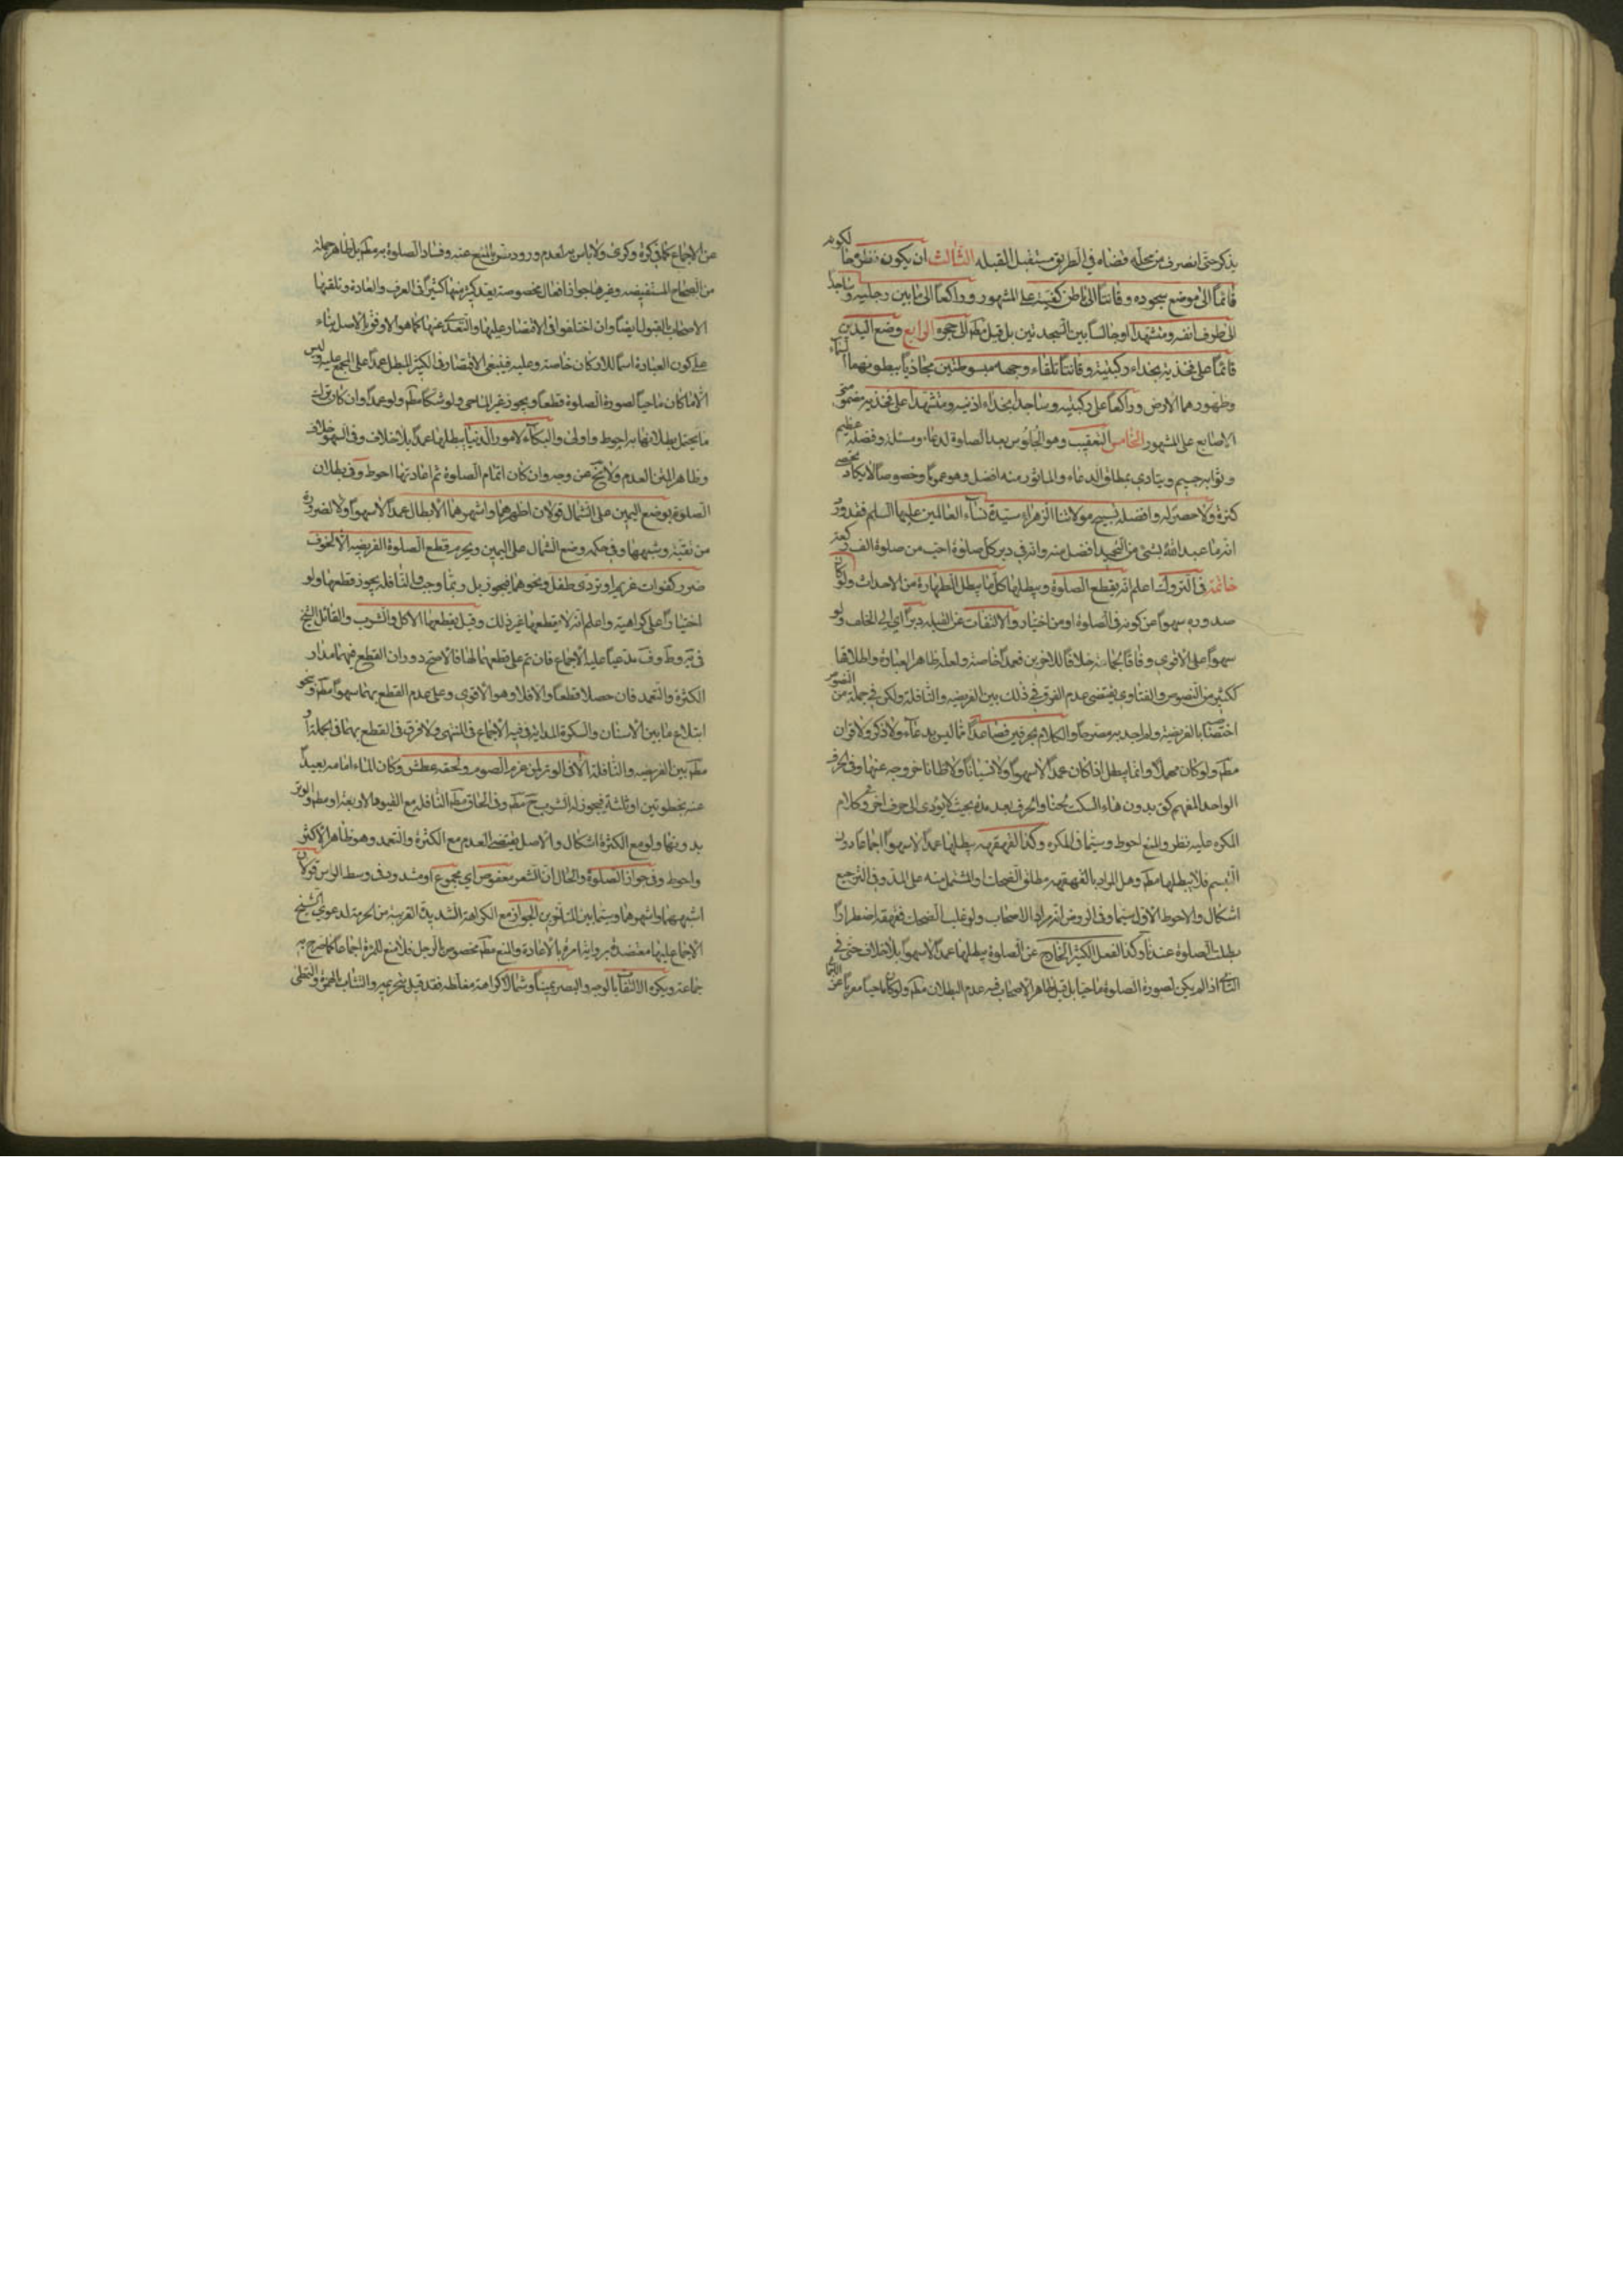 يذكر حتى انصرف من محله قضاه في الطريق مستقبل القبله الثالث ان يكون نظره حال كونه
قائما الى موضع سجوده و قانتا الى باطن كفيه على المشهور و راكعا الى ما بين رجليه و ساجدا
الى طرف انفه و متشهدا او جالسا بين السجدتين بل قيل مطم الى حجره الرابع وضع اليدين
قائما على فخذيه بحذاء ركبتيه و قانتا تلقاء وجهه مبسوطتين محاذيا ببطونهما السماء
و ظهورهما الارض و راكعا على ركبتيه و ساجدا بحذاء اذنيه و متشهدا على فخذيه مضمومتي
الاصابع على المشهور الخامس التعقيب و هو الجلوس بعد الصلوة لدعاء و مسئلة و فضله عظيم
و ثوابه جسيم و يتادى بمطلق الدعاء و الماثور منه افضل و هو عموما و خصوصا لا يكاد يحصى
كثرة و لا حصر له و افضله تسبيح مولاتنا الزهراء سيدة نساء العالمين عليها السلم فقد ورد
انه ما عبد الله بشئ من التمجيد افضل منه و انه في دبر كل صلوة احب من صلوة الف ركعة
خاتمة في التروك اعلم انه يقطع الصلوة و يبطلها كل ما يبطل الطهارة من الاحداث و لو كان
صدوره سهوا عن كونه في الصلوة او من اختيار و الالتفات عن القبله دبرا اي الى الخلف و لو
سهوا على الاقوى وفاقا لجماعة خلافا للاخرين فعمدا خاصة و لعله ظاهر العبارة و اطلاقها
ككثير من النصوص و الفتاوى يقتضي عدم الفرق في ذلك بين الفريضه و النافلة و لكن في جملة من النصوص
اختصتا بالفريضة و لم اجد به مصرحا و الكلام بحرفين فصاعدا مما ليس بدعاء و لا ذكر و لا قران
مطم و لو كان مهملا و انما يبطل اذا كان عمدا لا سهوا و لا نسيانا و لا ظانا خروجه عنها و في الحرف
الواحد المفهم كق بدون هاء السكت لحنا و الحرف بعد مدة بحيث لا يؤدى الى حرف اخر و كلام
المكره عليه نظر و المنع احوط و سيما في المكره و كذا القهقهه يبطلها عمدا لا سهوا اجماعا دون
التبسم فلا يبطلها مطم و هل المراد بالقهقهه مطلق الضحك او المشتمل منه على المد و في الترجيع
اشكال و الاحوط الاول سيما و في الروض انه مراد الاصحاب و لو غلب الضحك فقهقه اضطرارا
بطلت الصلوة عندنا و كذا الفعل الكثير الخارج عن الصلوة يبطلها عمدا لا سهوا بلا خلاف حتى في
الثاني اذا لم يكن لصورة الصلوة ماحيا بل قيل ظاهر الاصحاب فيه عدم البطلان مطم و لو كان ماحيا معربا عن
عن الاجماع كما في كرة و كرى و لا باس به لعدم ورود نص بالمنع عنه و فساد الصلوة به مطم بل ظاهر جملة
من الصحاح المستفيضه و غيرها جواز افعال مخصوصة يعد كثير منها كثيرا في العرف و العادة و تلقتها
الاصحاب بالقبول ايضا و ان اختلفوا في الاقتصار عليها و التعدى عنها كما هو الاوفق بالاصل بناء
على كون العبادة اسما للاركان خاصة و عليه فينبغي الاقتصار في الكثير المبطل عمدا على المجمع عليه و ليس
الا ما كان ماحيا لصورة الصلوة قطعا و يجوز غير الماحي و لو شكا مطم و لو عمدا و ان كان ترك
ما يحتمل بطلانها به احوط و اولى و البكاء لامور الدنيا يبطلها عمدا بلا خلاف و في السهو خلاف
و ظاهر المتن العدم و لا يخ عن وجه و ان كان اتمام الصلوة ثم اعادتها احوط و في بطلان
الصلوة بوضع اليمين على الشمال قولان اظهرهما و اشهرهما الابطال عمدا لا سهوا و لا لضرورة
من تقية و شبهها و في حكمه وضع الشمال على اليمين و يحرم قطع الصلوة الفريضه الا لخوف
ضرر كفوات غريم او تردى طفل و نحوهما فيجوز بل ربما وجب اما النافله يجوز قطعها و لو
اختيارا على كراهية و اعلم انه لا يقطعها غير ذلك و قيل يقطعها الاكل و الشرب و القائل الشيخ
في ط و ف مدعيا عليه الاجماع فان تم على قطعهما لها فالاصح دوران القطع فيهما مدار
الكثرة و التعمد فان حصلا قطعا و الا فلا و هو الاقوى و على عدم القطع بهما سهوا مطم و نحو
ابتلاع ما بين الاسنان و السكرة المذابة في فيه الاجماع في المنتهى و لا فرق في القطع بهما في الجملة او
مطم بين الفريضه و النافلة الا في الوتر لمن عزم الصوم و لحقه عطش و كان الماء امامه بعيدا
عنه بخطوتين او ثلثة فيجوز له الشرب ح مطم و في الحاق مطم النافله مع القيود الاربعة او مطم و الوتر
بدونها و لو مع الكثرة اشكال و الاصل يقتضى العدم مع الكثرة و التعمد و هو ظاهر الاكثر
و احوط و في جواز الصلوة و الحال ان الشعر معقوص اي مجموع او مشدود في وسط الراس قولان
اشبههما و اشهرهما و سيما بين المتاخرين الجواز مع الكراهة الشديدة القريبة من الحرمة لدعوى الشيخ
الاجماع عليها معتضدة برواية امرة بالاعادة و المنع مطم مخصوص بالرجل فلا منع للمرءة اجماعا كما صرح به
جماعة و يكره الالتفات بالوجه و البصر يمينا و شمالا كراهة مغلظه فقد قيل بتحريمه و التثاب بالهمزة و التمطى